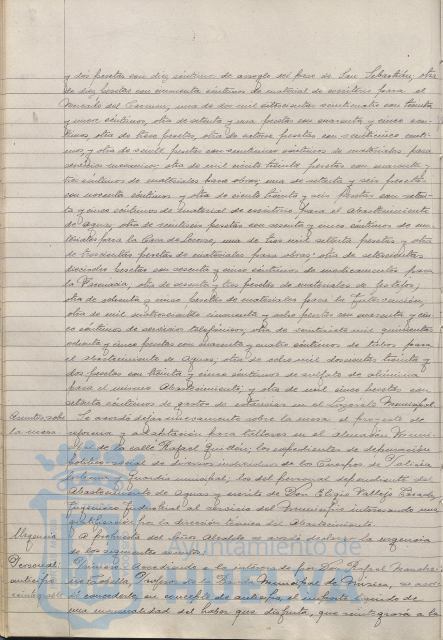 y dos pesetas con diez céntimos de arreglo del foso de San Sebastián; otra
de diez pesetas con cincuenta céntimos de material de escritorio para el
Mercado del Carmen; una de dos mil setecientas veinticuatro con treinta
y nueve céntimos, otra de setenta y una pesetas con cuarenta y cinco cén-
timos, otra de trece pesetas, otra de catorce pesetas con veinticinco cénti-
mos, y otra de pesetas con céntimos de materiales para
mecánicos; otra de mil ciento treinta pesetas con cuarenta y
tres céntimos de materiales para obras; una de setenta y seis pesetas
con noventa céntimos y otra de ciento treinta y seis pesetas con seten-
ta y cinco céntimos de material de escritorio para el Abastecimiento
de aguas; otra de pesetas con sesenta y cinco céntimos de ma-
teriales para la Casa de Socorro; una de tres mil setenta pesetas y otra
de trescientas pesetas de materiales para obras; otra de setecientas
pesetas con sesenta y cinco céntimos de medicamentos para
la Farmacia; otra de sesenta y tres pesetas de materiales de festejos;
otra de ochenta y cinco pesetas de materiales para la Intervención;
otra de mil cuatrocientas cincuenta y ocho pesetas con cuarenta y cin-
co céntimos de servicios telefónicos; otra de mil quinientas
ochenta y cinco pesetas con sesenta y cuatro céntimos de tubos para
el abastecimiento de aguas; otra de ocho mil doscientas treinta y
dos pesetas con treinta y cinco céntimos de sulfato de alúmina
para el mismo Abastecimiento; y otra de mil cinco pesetas con
setenta céntimos de gastos de estancias en el Hospital Municipal.
Asuntos sobre la mesa Se acordó dejar nuevamente sobre la mesa el proyecto de
reforma y adaptación para talleres en el almacén Muni-
cipal de la calle Rafael Guillén; los expedientes de depuración
político-social de diversos individuos de los Cuerpos de Policía
Urbana y Guardia municipal; los del personal dependiente del
Abastecimiento de aguas y escrito de Don Eligio Vallejo
Ingeniero Industrial al servicio del Municipio interesando una
gratificación por la dirección técnica del Abastecimiento.
Urgencia A propuesta del Señor Alcalde se acordó declarar la urgencia
de los siguientes asuntos:
Personal: anticipo reintegrable Primero: Accediendo a lo interesado por Don Rafael
Profesor de la Banda Municipal de Música, se acordó
concederle, en concepto de anticipo, el importe líquido de
una mensualidad del haber que disfruta, que reintegrará a la
Ayuntamiento de